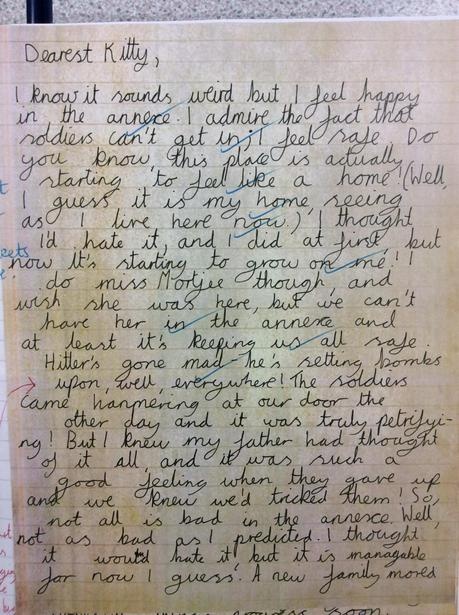 Dearest Kitty,
I know it sounds weird but I feel happy
in the annexe. I admire the fact that
soldiers can't get in; I feel safe. Do
you know this place is actually
starting to feel like a home! (Well,
I guess it is my home seeing
as I live here now.) I thought
I'd hate it, and I did at first, but
now It's starting to grow on me! I
do miss Mortjee though, and
wish she was here, but we can't
have her in the annexe and
at least it's keeping us all safe.
Hitler's gone mad - he's setting bombs
upon, well, everywhere! The soldiers
came hammering at our door the
other day and it was truly petrifyi-
ng! But I knew my father had thought
of it all, and it was such a
good feeling when they gave up
and we knew we'd tricked them! So,
not all is bad in the annexe. Well,
not as bad as I predicted. I thought
it would hate it, but it is managable
for now I guess. A new family moved
soon.